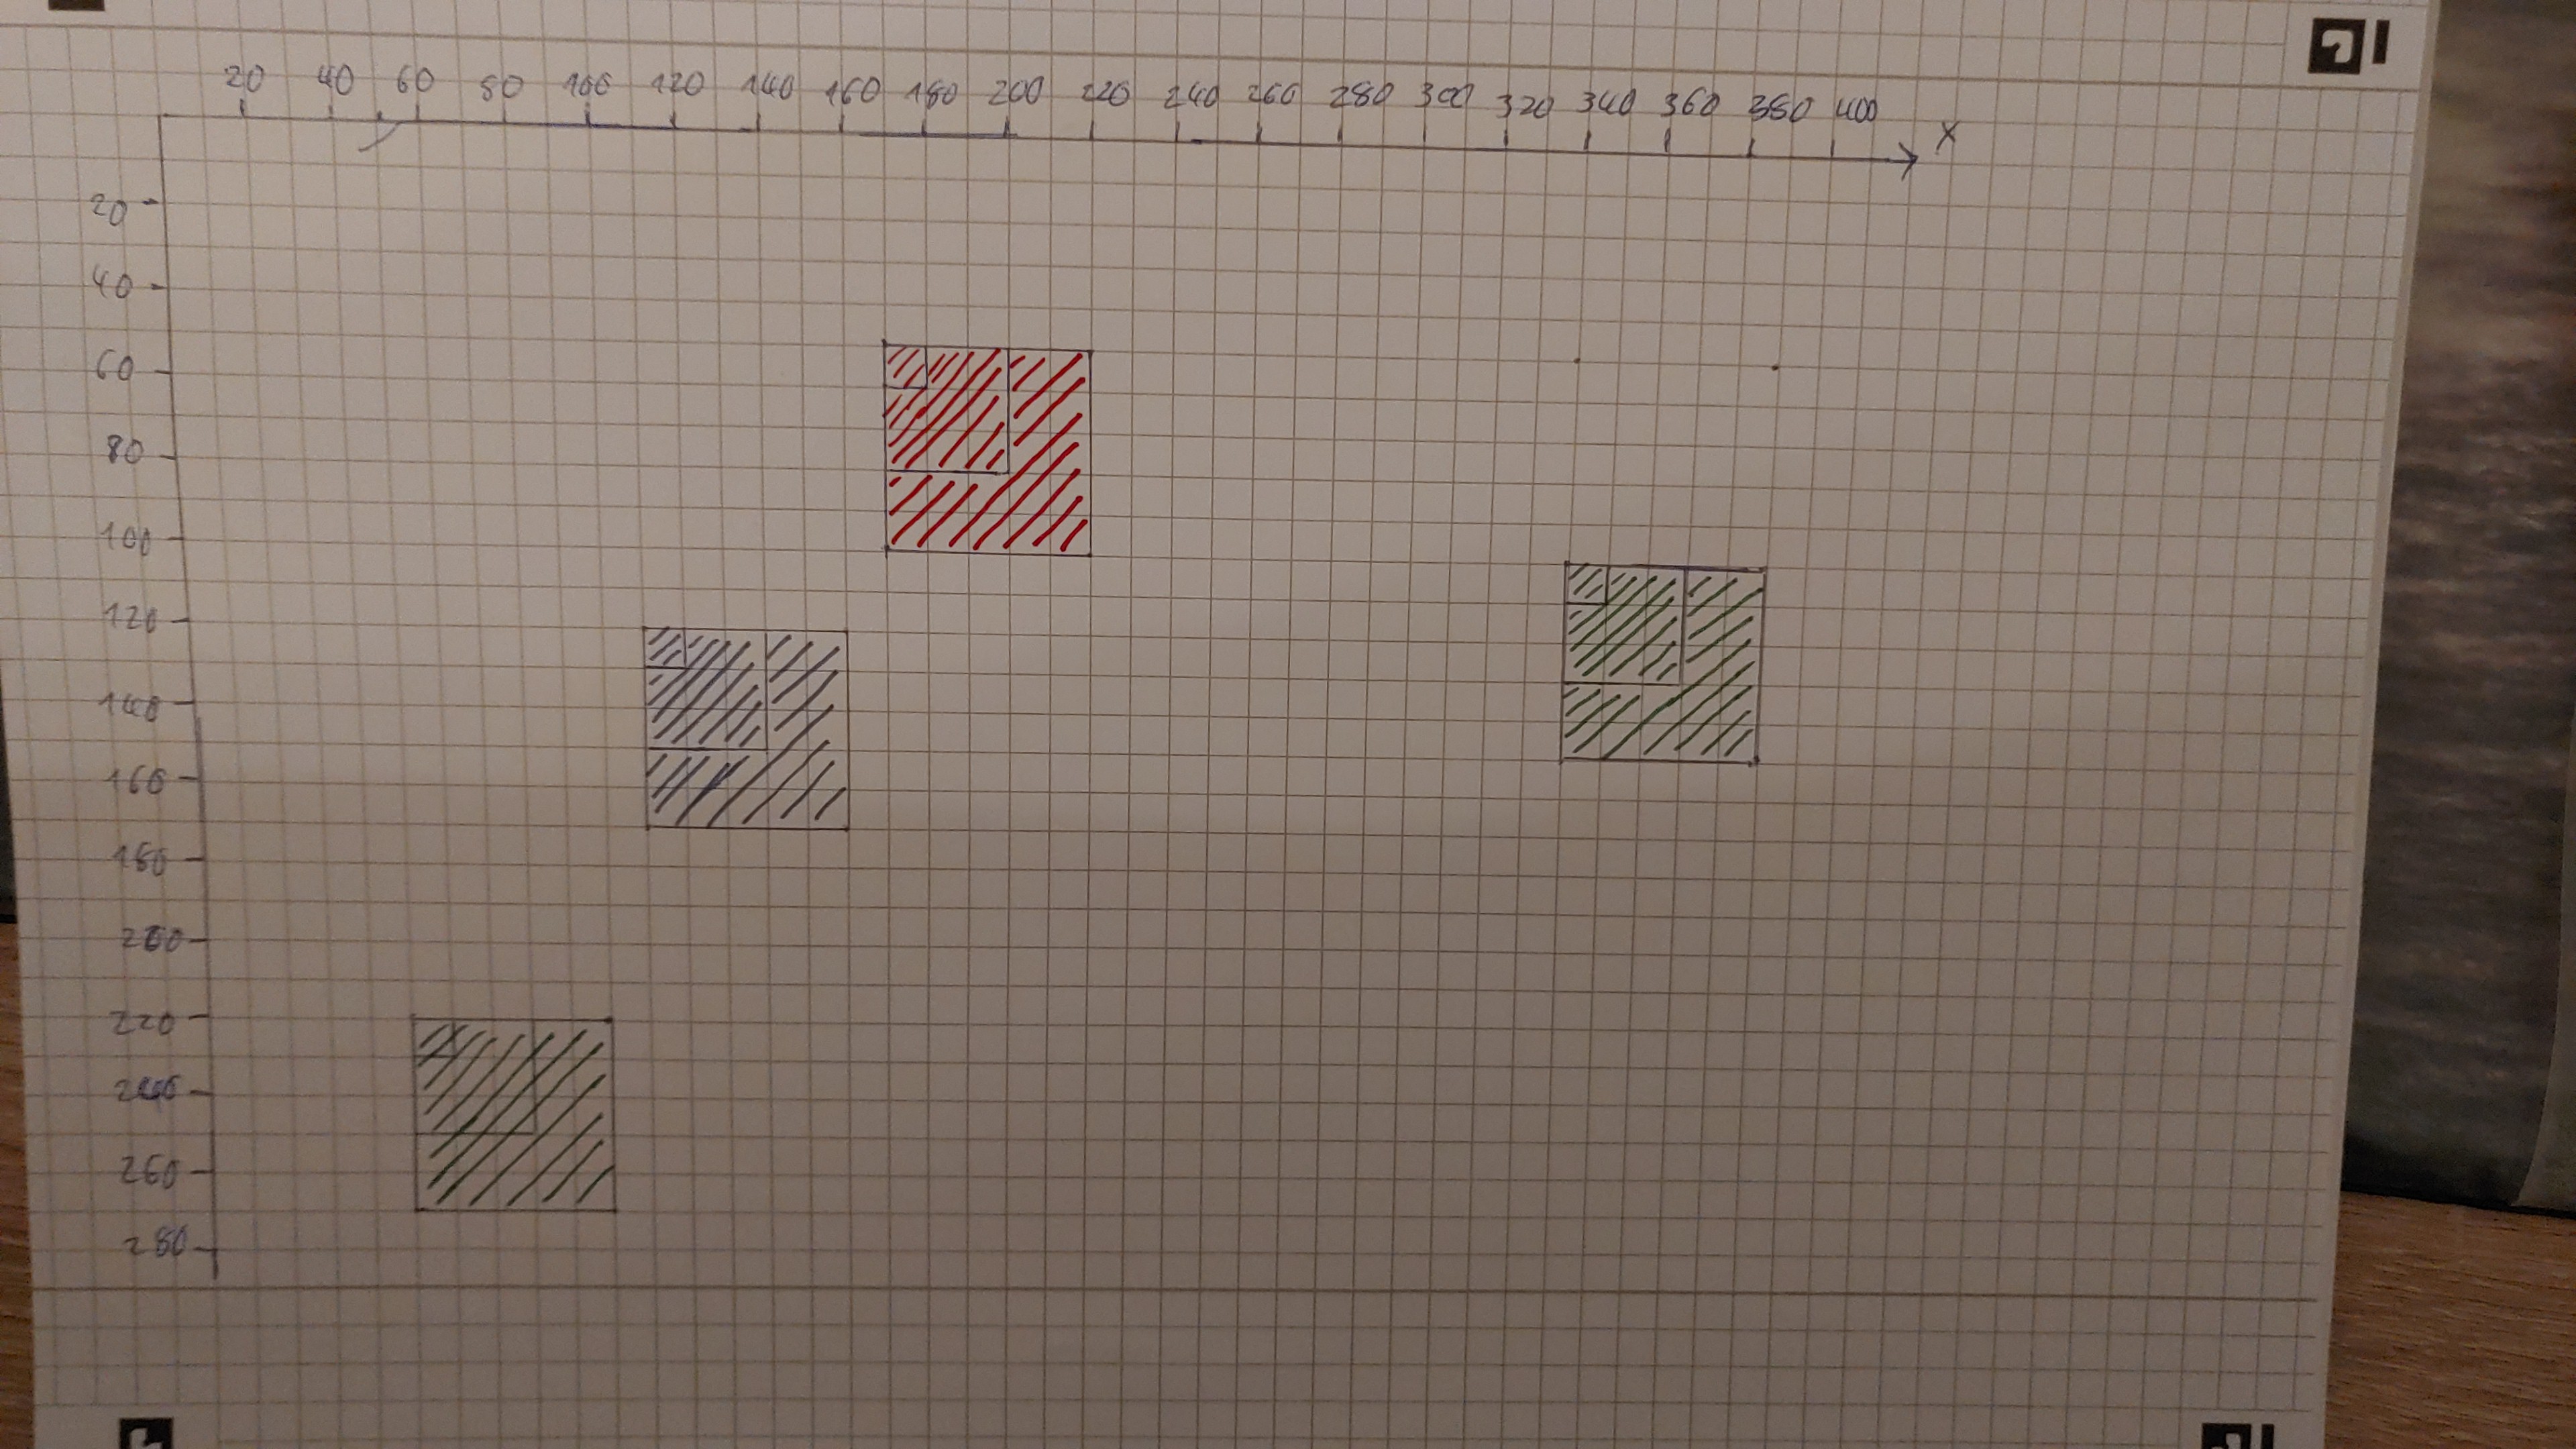 20 40 60 80 100 120 140 160 180 200 220 240 260 280 300 320 340 360 380 400
X
20
40
60
80
100
120
140
160
180
200
220
260
280